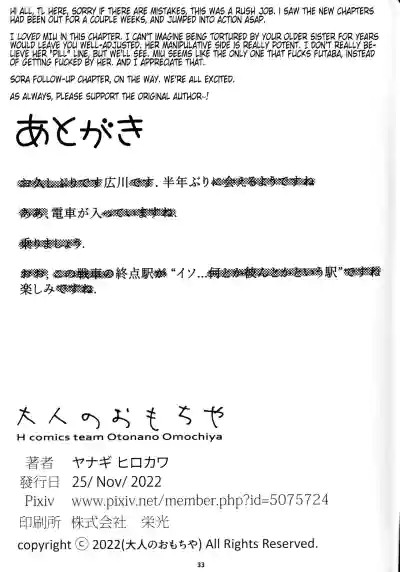 HI ALL, TL HERE, SORRY IF THERE ARE MISTAKES, THIS WAS A RUSH JOB. I SAW THE NEW CHAPTERS
HAD BEEN OUT FOR A COUPLE WEEKS, AND JUMPED INTO ACTION ASAP.
I LOVED MIU IN THIS CHAPTER. I CAN'T IMAGINE BEING TORTURED BY YOUR OLDER SISTER FOR YEARS
WOULD LEAVE YOU WELL-ADJUSTED. HER MANIPULATIVE SIDE IS REALLY POTENT. I DON'T REALLY BE-
LIEVE HER "PILL" LINE, BUT WE'LL SEE. MIU SEEMS LIKE THE ONLY ONE THAT FUCKS FUTABA, INSTEAD
OF GETTING FUCKED BY HER. AND I APPRECIATE THAT.
SORA FOLLOW-UP CHAPTER, ON THE WAY. WE'RE ALL EXCITED.
AS ALWAYS, PLEASE SUPPORT THE ORIGINAL AUTHOR~!
あとがき
お久しぶりです広川です. 半年ぶりに会えるようですね
ああ, 電車が入っていますね.
乗りましょう.
おお, この戦車の終点駅が "イソ...何とか彼んとかという駅" ですね
楽しみですね.
大人のおもちや
H comics team Otonano Omochiya
著者 ヤナギ ヒロカワ
發行日 25/ Nov/ 2022
Pixiv www.pixiv.net/member.php?id=5075724
印刷所 株式会社 栄光
copyright ⓒ 2022(大人のおもちや) All Rights Reserved.
33